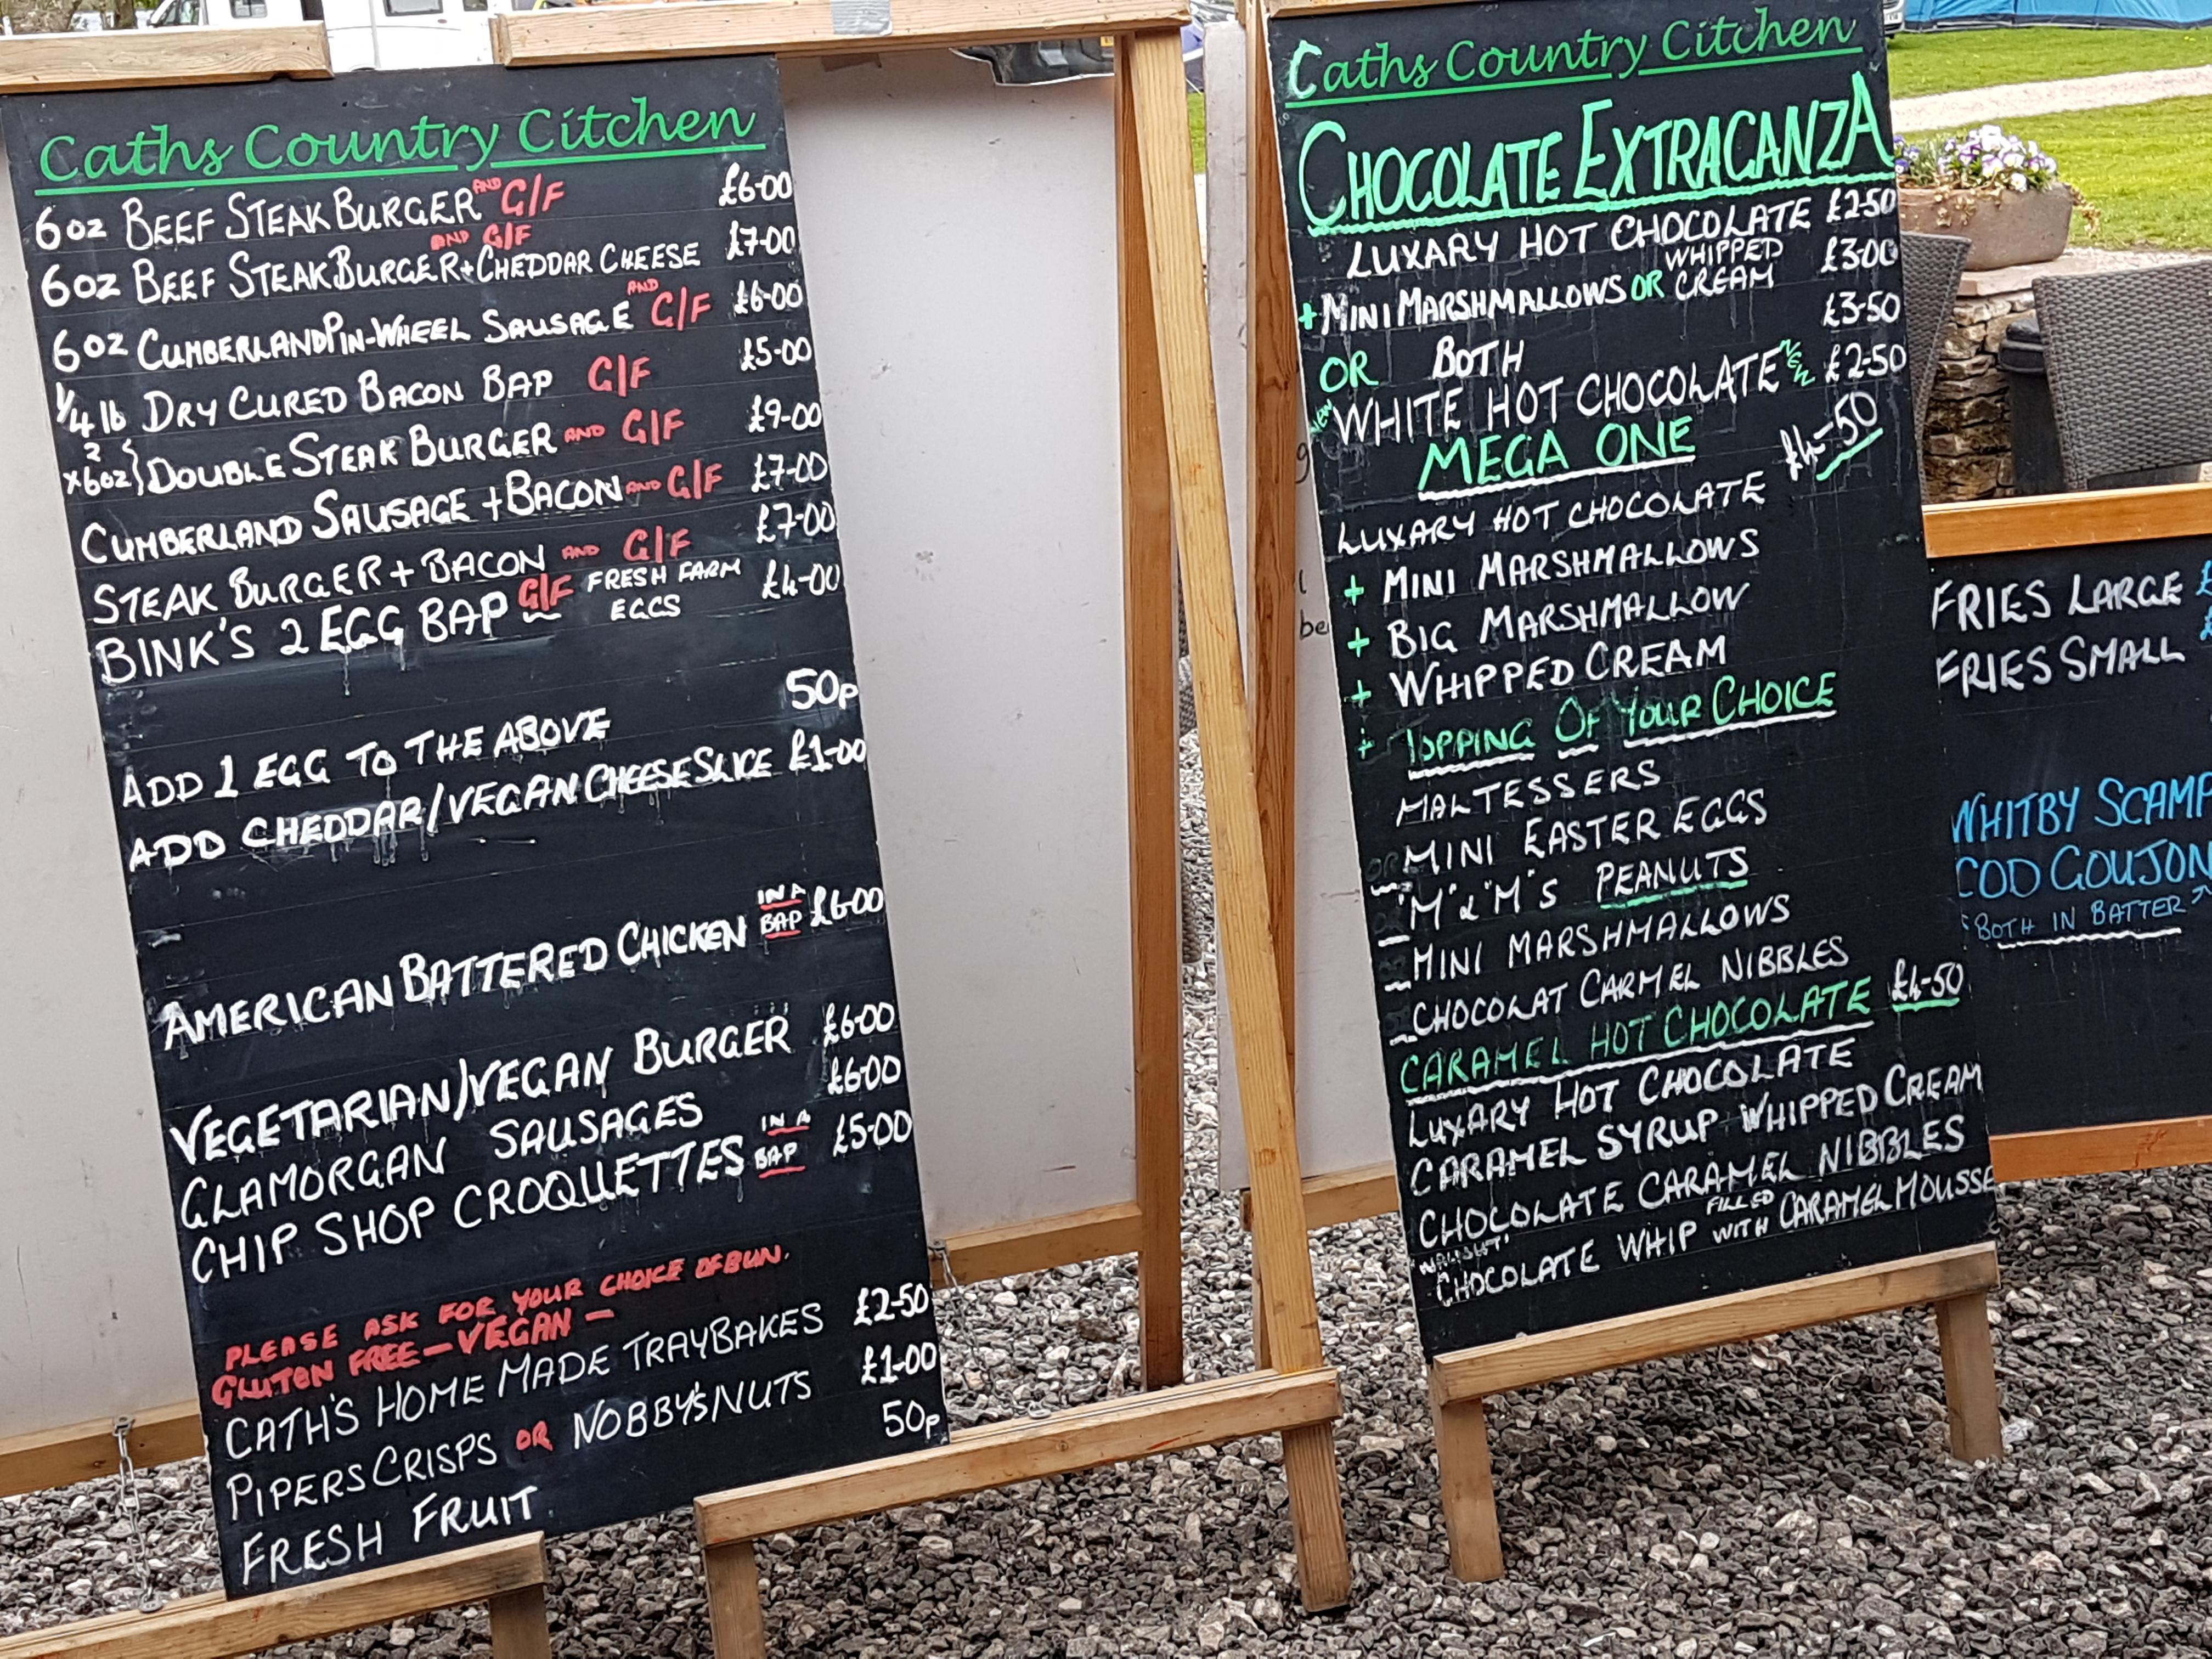 Caths Country Citchen
6oz BEEF STEAK BURGER AND G/F £6-00
AND G/F
6oz BEEF STEAK BURGER + CHEDDAR CHEESE £7-00
6oz CUMBERLAND PIN-WHEEL SAUSAGE AND G/F £6-00
1/4 lb DRY CURED BACON BAP G/F £5-00
2 x6oz} DOUBLE STEAK BURGER AND G/F £9-00
CUMBERLAND SAUSAGE + BACON AND G/F £7-00
STEAK BURGER + BACON AND G/F £7-00
BINK'S 2 EGG BAP G/F FRESH FARM EGGS £4-00
ADD 1 EGG TO THE ABOVE 50p
ADD CHEDDAR/VEGAN CHEESE SLICE £1-00
AMERICAN BATTERED CHICKEN IN A BAP £6-00
VEGETARIAN/VEGAN BURGER £6-00
GLAMORGAN SAUSAGES £6-00
CHIP SHOP CROQUETTES IN A BAP £5-00
PLEASE ASK FOR YOUR CHOICE OF BUN.
GLUTON FREE - VEGAN -
CATH'S HOME MADE TRAYBAKES £2-50
PIPERS CRISPS OR NOBBY'S NUTS £1-00
FRESH FRUIT 50p
Caths Country Citchen
CHOCOLATE EXTRAGANZA
LUXARY HOT CHOCOLATE £2-50
+ MINI MARSHMALLOWS OR WHIPPED CREAM £3-00
OR BOTH £3-50
NEW WHITE HOT CHOCOLATE NEW £2-50
MEGA ONE £4-50
LUXARY HOT CHOCOLATE
+ MINI MARSHMALLOWS
+ BIG MARSHMALLOW
+ WHIPPED CREAM
+ TOPPING OF YOUR CHOICE
MALTESSERS
OR MINI EASTER EGGS
OR "M"&"M"'S PEANUTS
OR MINI MARSHMALLOWS
OR CHOCOLAT CARMEL NIBBLES
CARAMEL HOT CHOCOLATE £4-50
LUXARY HOT CHOCOLATE
CARAMEL SYRUP WHIPPED CREAM
CHOCOLATE CARAMEL NIBBLES
CHOCOLATE WHIP FILLED WITH CARAMEL MOUSSE
FRIES LARGE £
FRIES SMALL £
WHITBY SCAMP
COD GOUJON
BOTH IN BATTER